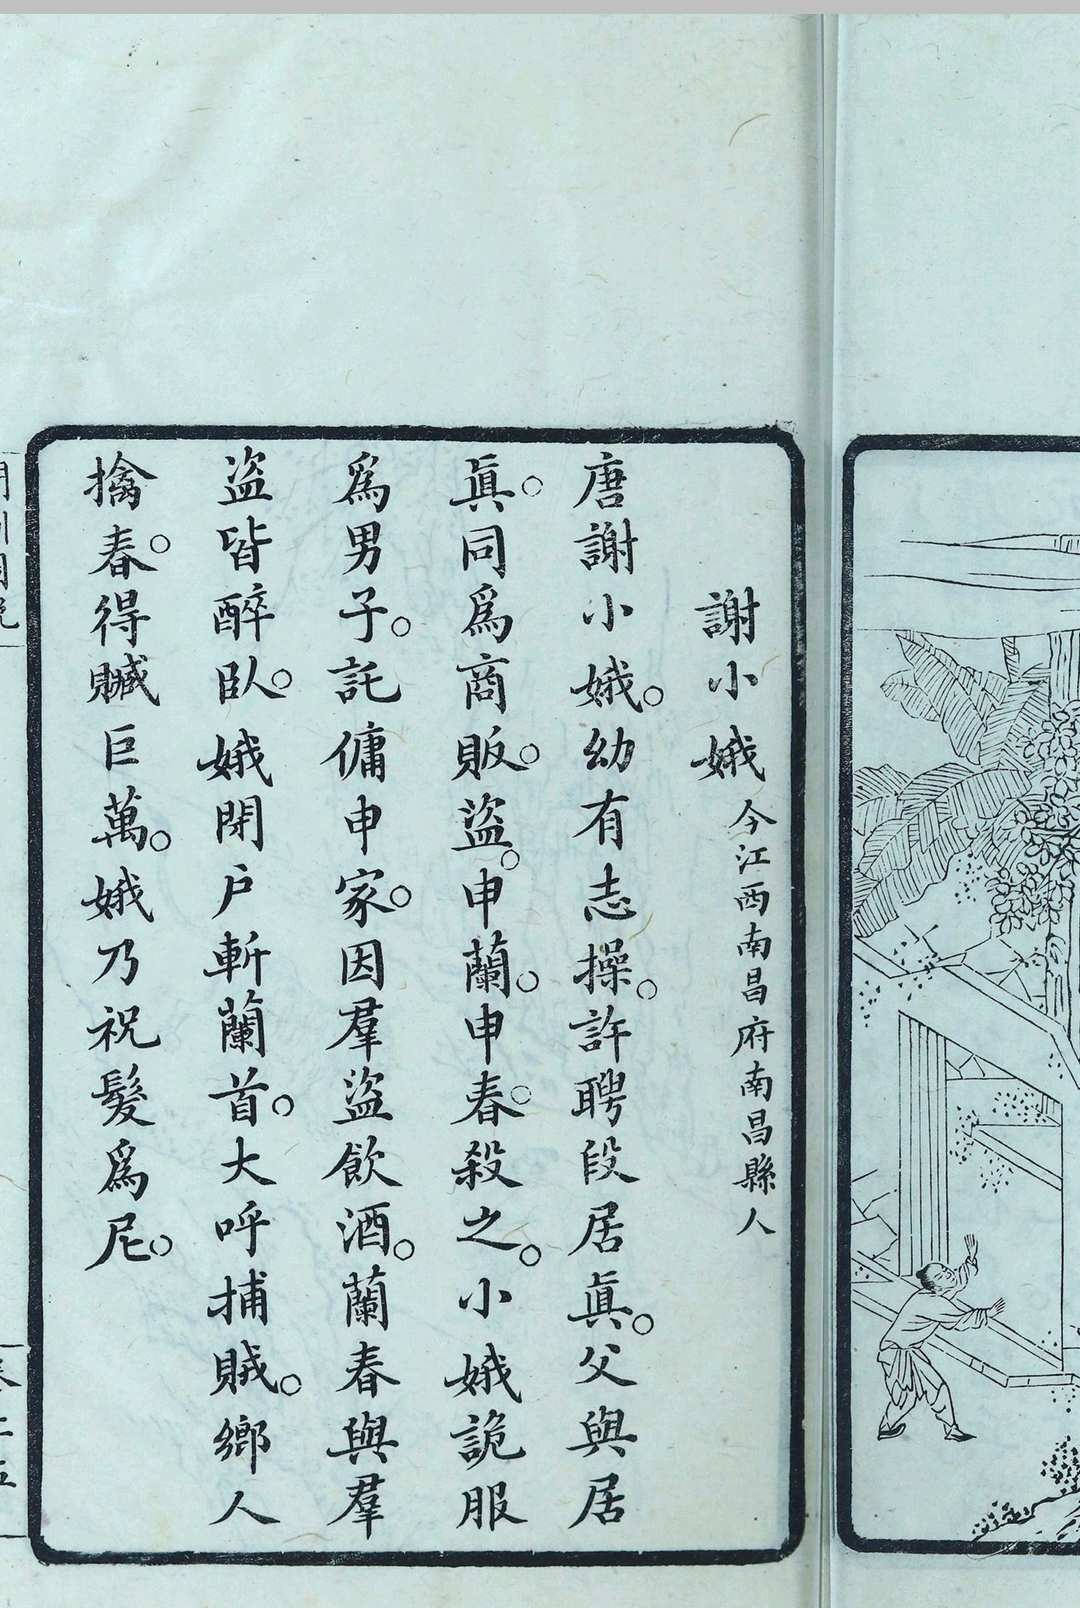 謝小娥 今江西南昌府南昌縣人
唐謝小娥。幼有志操。許聘段居眞。父與居
眞。同爲商販。盜。申蘭。申春。殺之。小娥詭服
爲男子。託傭申家。因羣盜飲酒。蘭春與羣
盜皆醉臥。娥閉戶斬蘭首。大呼捕賊。鄉人
擒春。得贓巨萬。娥乃祝髮爲尼。